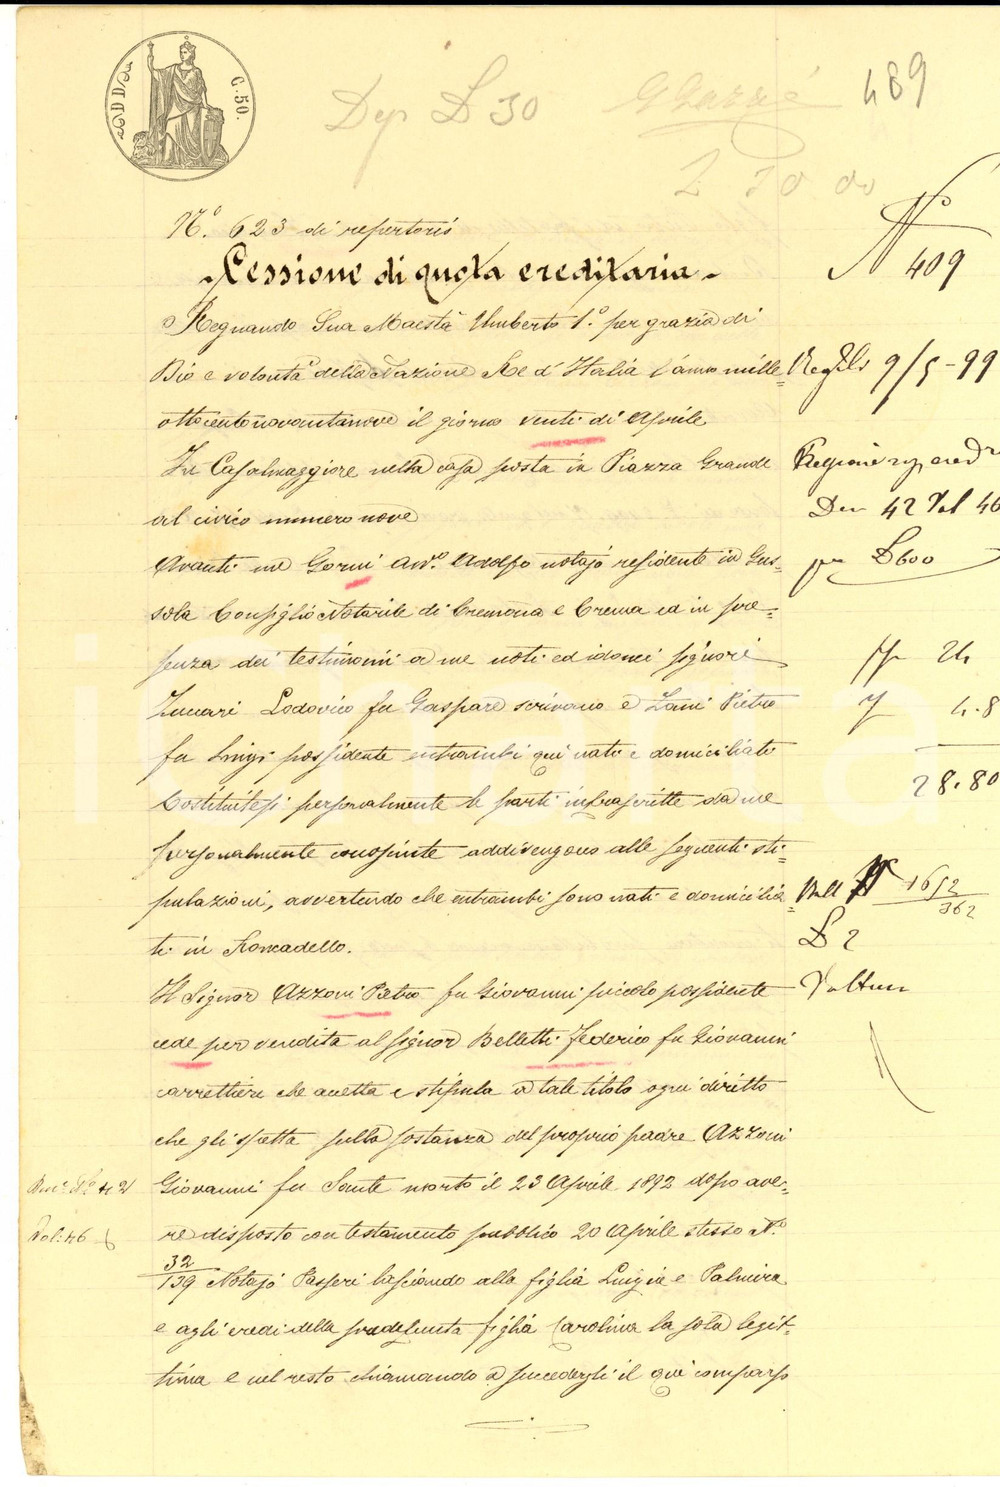 C. 50.
Dep L 30
489
L 30 00
N.° 623 di repertorio
N°
409
Cessione di quota ereditaria
Regnando Sua Maestà Umberto 1.° per grazia di
Dio e volontà della Nazione Re d'Italia l'anno mille
ottocentonovantanove il giorno venti di Aprile
In Casalmaggiore nella casa posta in Piazza Grande
al civico numero nove
Avanti me Gorni Avv.° Adolfo notajo residente in Gus-
sola Consiglio Notarile di Cremona e Crema ed in pre-
senza dei testimoni a me noti ed idonei signori
Zuccari Lodovico fu Gaspare scrivano e Zani Pietro
fu Luigi possidente entrambi qui nati e domiciliati
Costituitesi personalmente le parti infrascritte da me
personalmente conosciute addivengono alle seguenti sti-
pulazioni, avvertendo che entrambi sono nati e domicilia-
ti in Roncadello.
Il Signor Azzoni Pietro fu Giovanni piccolo possidente
cede per vendita al signor Belletti Federico fu Giovanni
carrettiere che accetta e stipula a tale titolo ogni diritto
che gli spetta sulla sostanza del proprio padre Azzoni
Giovanni fu Sante morto il 23 Aprile 1892 dopo ave-
re disposto con testamento pubblico 20 Aprile stesso N.°
32/139 Notajo Passeri lasciando alla figlia Luigia e Palmira
e agli eredi della predefunta figlia Carolina la sola legit-
tima e nel resto chiamando a succedergli il qui comparso
9/5-99
42 Vol 46
per L 600
24
4.8
28.80
1652
362
L 2
N° 421
Vol: 46